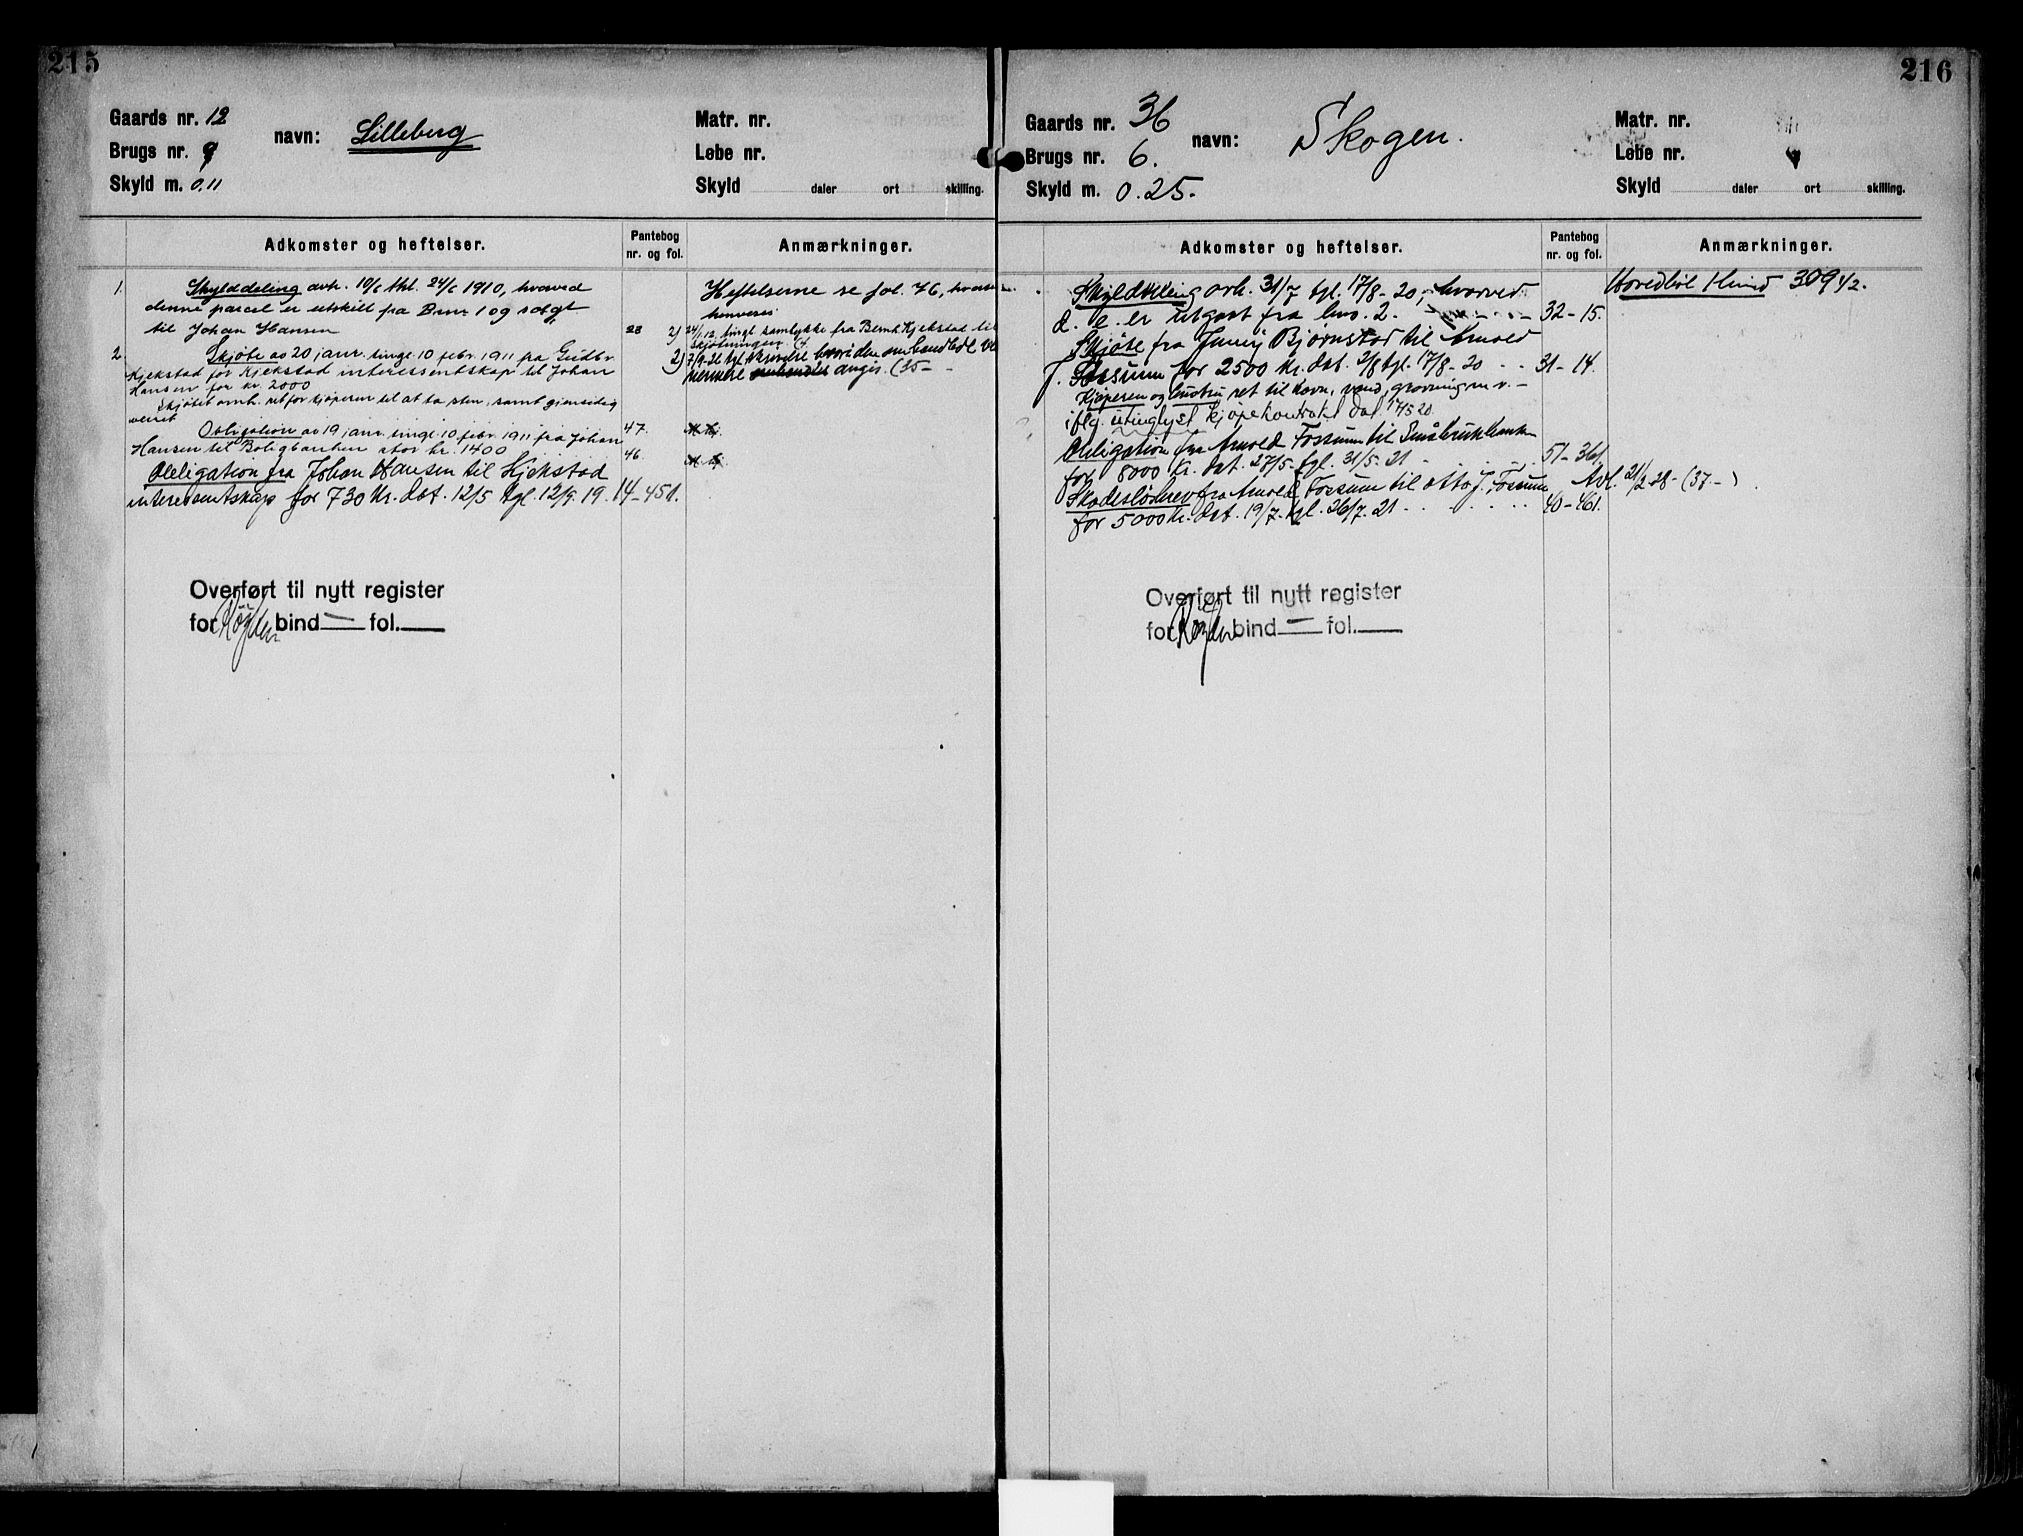 215
Gaards nr. 12
Brugs nr. 9
Skyld m. 0,11
navn: Lilleberg
Matr. nr.
Løbe nr.
Skyld daler ort skilling.
Adkomster og heftelser.
Pantebog nr. og fol.
Anmærkninger.
1. Skylddeling avh. 10/6 thl. 24/6 1910, hvorved
denne parcel er utskilt fra Bnr 1 og solgt
til Johan Hansen 28
2. Skjøte av 20 janr. tingl. 10 febr. 1911 fra Gudbr.
Kjekstad for Kjekstad interessentskap til Johan
Hansen for kr. 2000
Skjøtet omh. ret for kjøperen til at ta sten, samt gjensidig
veiret 47.
Obligation av 19 janr. tingl. 10 febr. 1911 fra Johan
Hansen til Boligbanken stor kr. 1400 46.
Obligation fra Johan Hansen til Kjekstad
interessentskap for 730 kr. dat. 12/5 tgl. 12/9. 19. 14-451.
Heftelserne se fol. 76, hvortil
henvises
2) 24/12 tingl samtykke fra Bernh. Kjekstad til
skjøtningen
2) 7/9-26 tgl skrivelse hvori den
nermere angis. (35 -
Overført til nytt register
for Røyken bind — fol. —
216
Gaards nr. 36
Brugs nr. 6.
Skyld m. 0.25.
navn: Skogen.
Matr. nr.
Løbe nr.
Skyld daler ort skilling.
Adkomster og heftelser.
Pantebog nr. og fol.
Anmærkninger.
Skylddeling avh. 31/7 tgl. 17/8-20, hvorved
d. e. er utgaat fra bno. 2. 32-15.
Skjøte fra Bjørnstad til Arnold
J. Fossum for 2500 kr. dat. 2/8 tgl. 17/8-20 31-14.
Kjøperen og hustru ret til havn, vand, m. v. -
iflg. utinglyst kjøpekontrakt dat 17/5 20
Obligation fra Arnold Fossum til Småbrukbanken
for 8000 kr. dat. 27/5 tgl. 31/5. 21 51-361.
Skadesløsbrev fra Arnold Fossum til Otto J. Fossum
for 5000 kr. dat. 19/7. tgl. 26/7. 21 40-461.
Hovedbøl Hind 309 1/2.
Avl. 21/2 28 - (37 - )
Overført til nytt register
for Røyken bind — fol. —